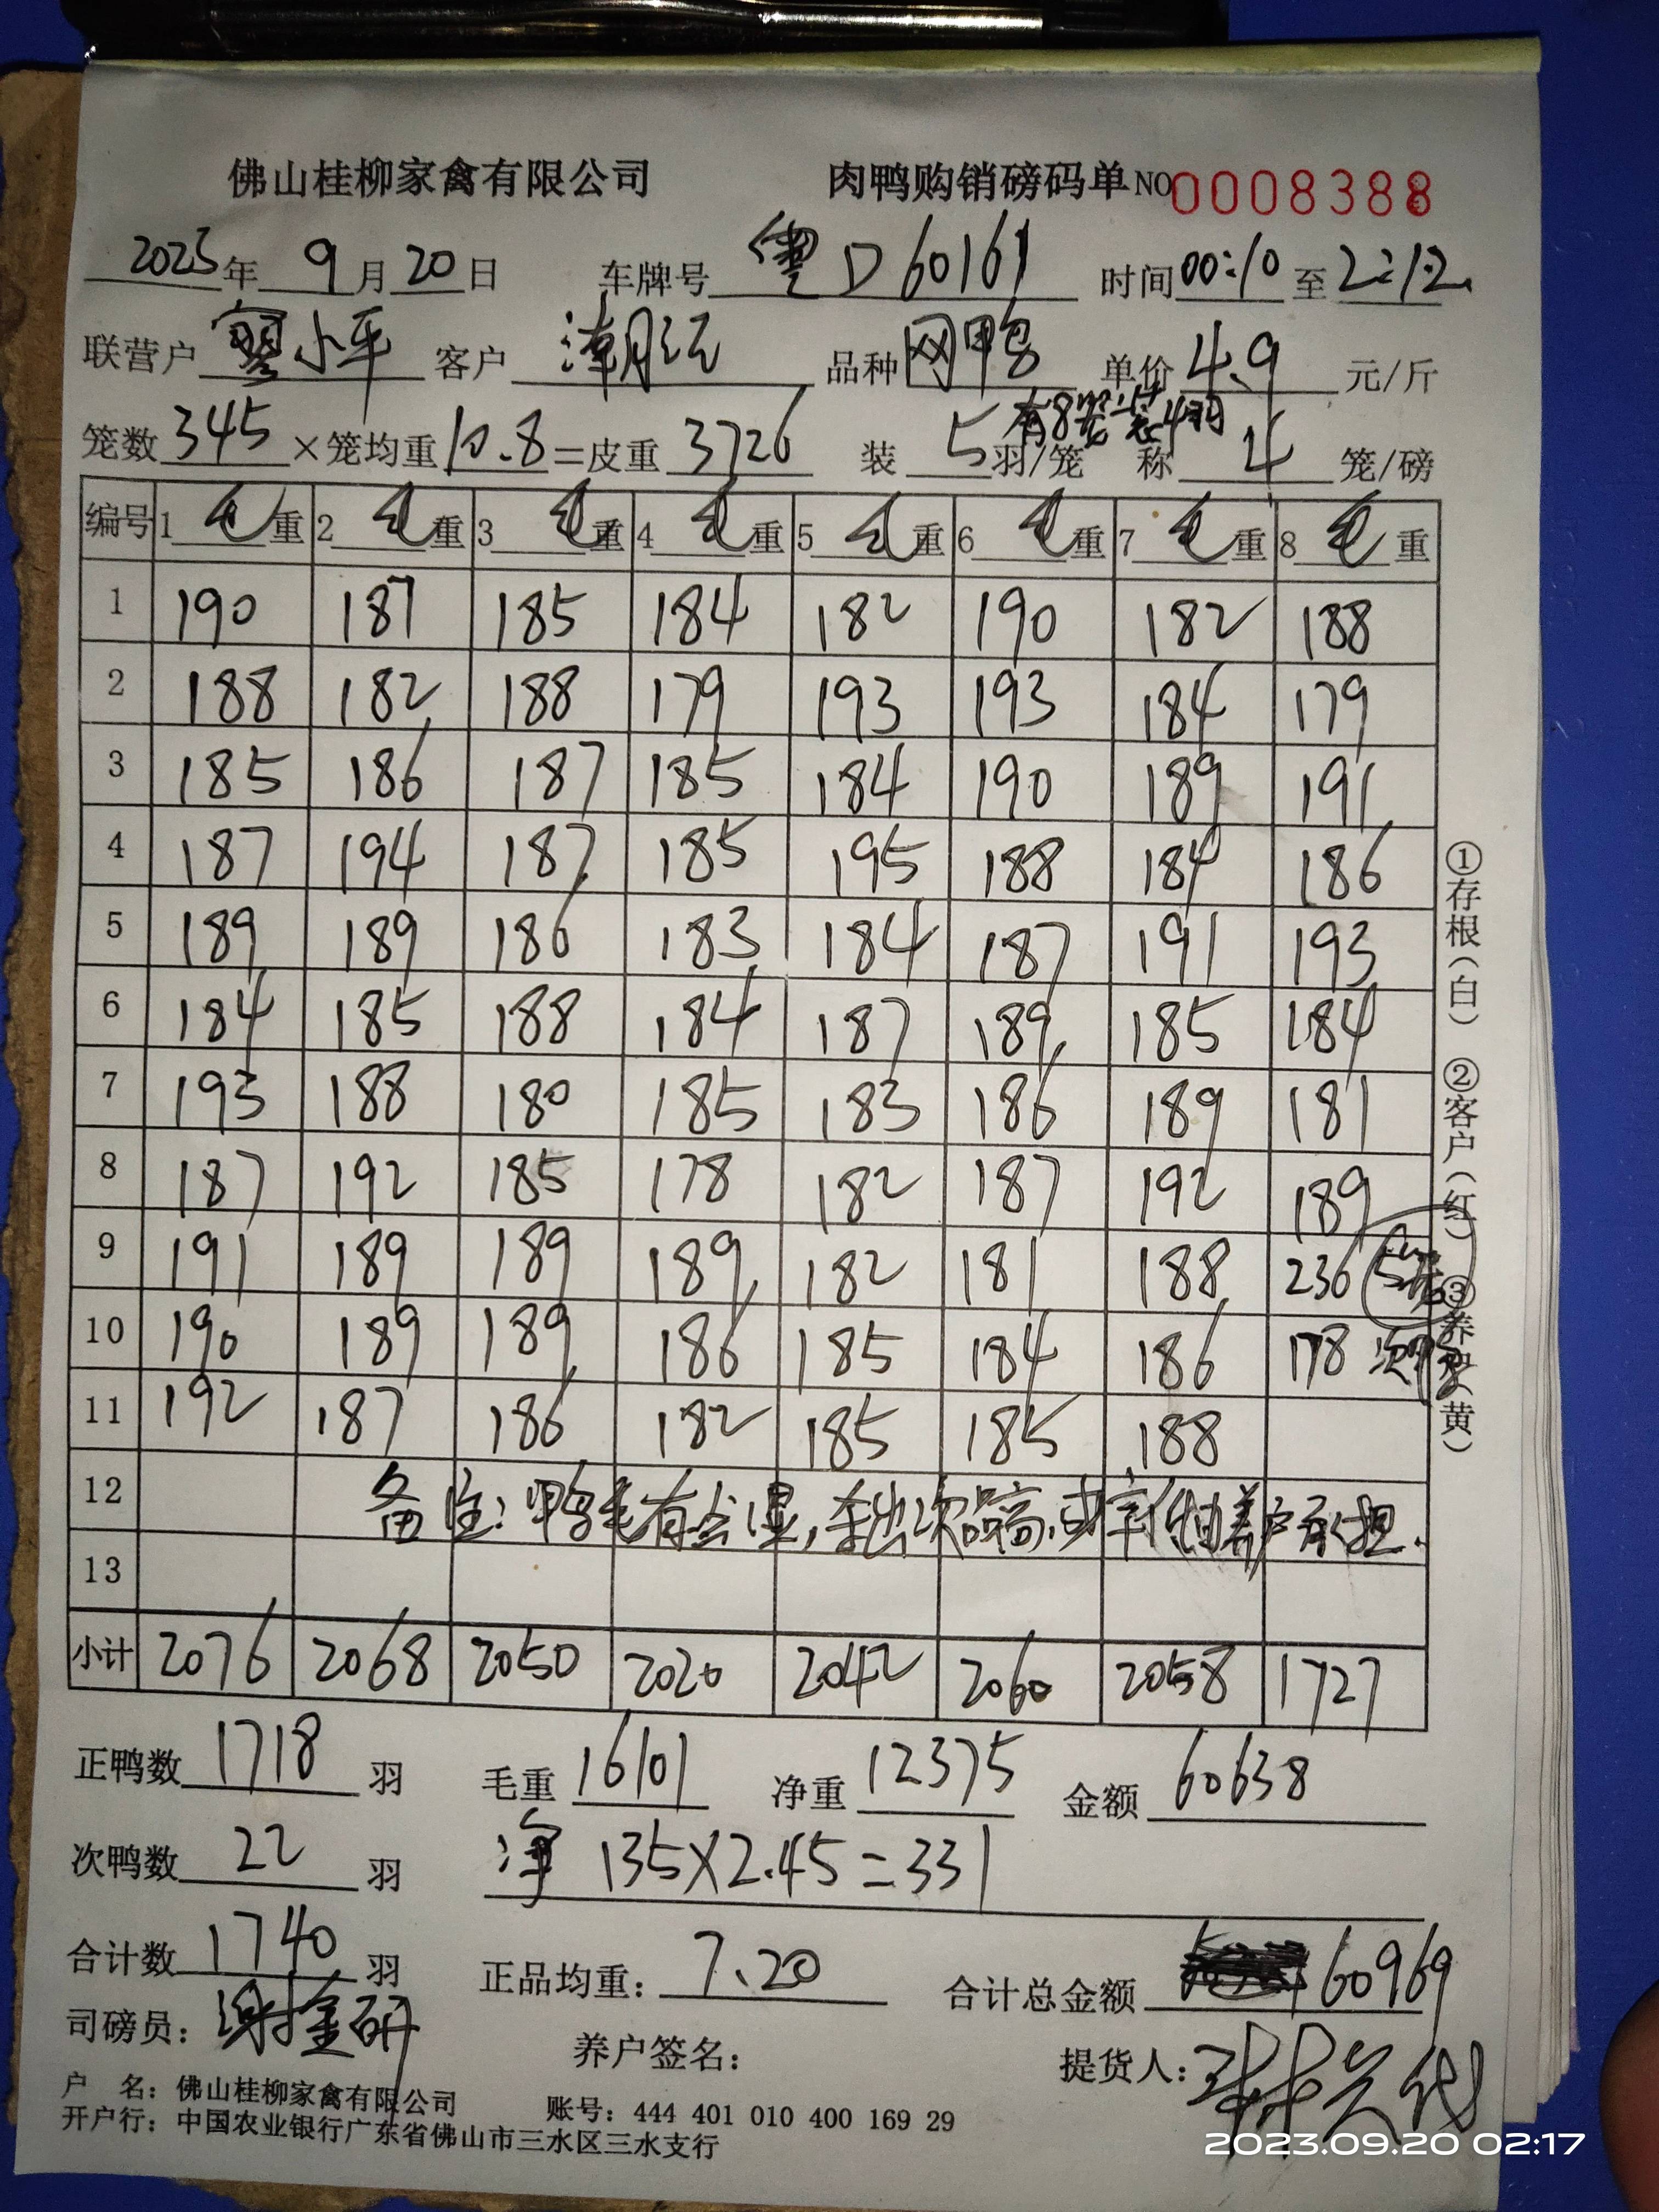 佛山桂柳家禽有限公司 肉鸭购销磅码单 NO 0008388
2023年 9月20日 车牌号 粤D60161 时间 00:10 至 2:12
联营户 廖小平 客户 潮江 品种 网鸭 单价 4.9 元/斤
有8笼装4羽
笼数 345 ×笼均重 10.8 =皮重 3726 装 5 羽/笼 称 4 笼/磅
编号 1 毛重 2 毛重 3 毛重 4 毛重 5 毛重 6 毛重 7 毛重 8 毛重
1 190 187 185 184 182 190 182 188
2 188 182 188 179 193 193 184 179
3 185 186 187 185 184 190 189 191
4 187 194 187 185 195 188 184 186
5 189 189 186 183 184 187 191 193
6 184 185 188 184 187 189 185 184
7 193 188 180 185 183 186 189 181
8 187 192 185 178 182 187 192 189
9 191 189 189 189 182 181 188 236 5笼
10 190 189 189 186 185 184 186 178 次鸭
11 192 187 186 182 185 185 188
12 备注:鸭毛有点湿,宰出次品高,成率低由养户承担.
13
小计 2076 2068 2050 2020 2042 2060 2058 1727
①存根(白) ②客户(红) ③养户(黄)
正鸭数 1718 羽 毛重 16101 净重 12375 金额 60638
次鸭数 22 羽 净 135×2.45=331
合计数 1740 羽 正品均重: 7.20 合计总金额 60969
司磅员: 养户签名: 提货人:
户 名: 佛山桂柳家禽有限公司 账号: 444 401 010 400 169 29
开户行: 中国农业银行广东省佛山市三水区三水支行
2023.09.20 02:17